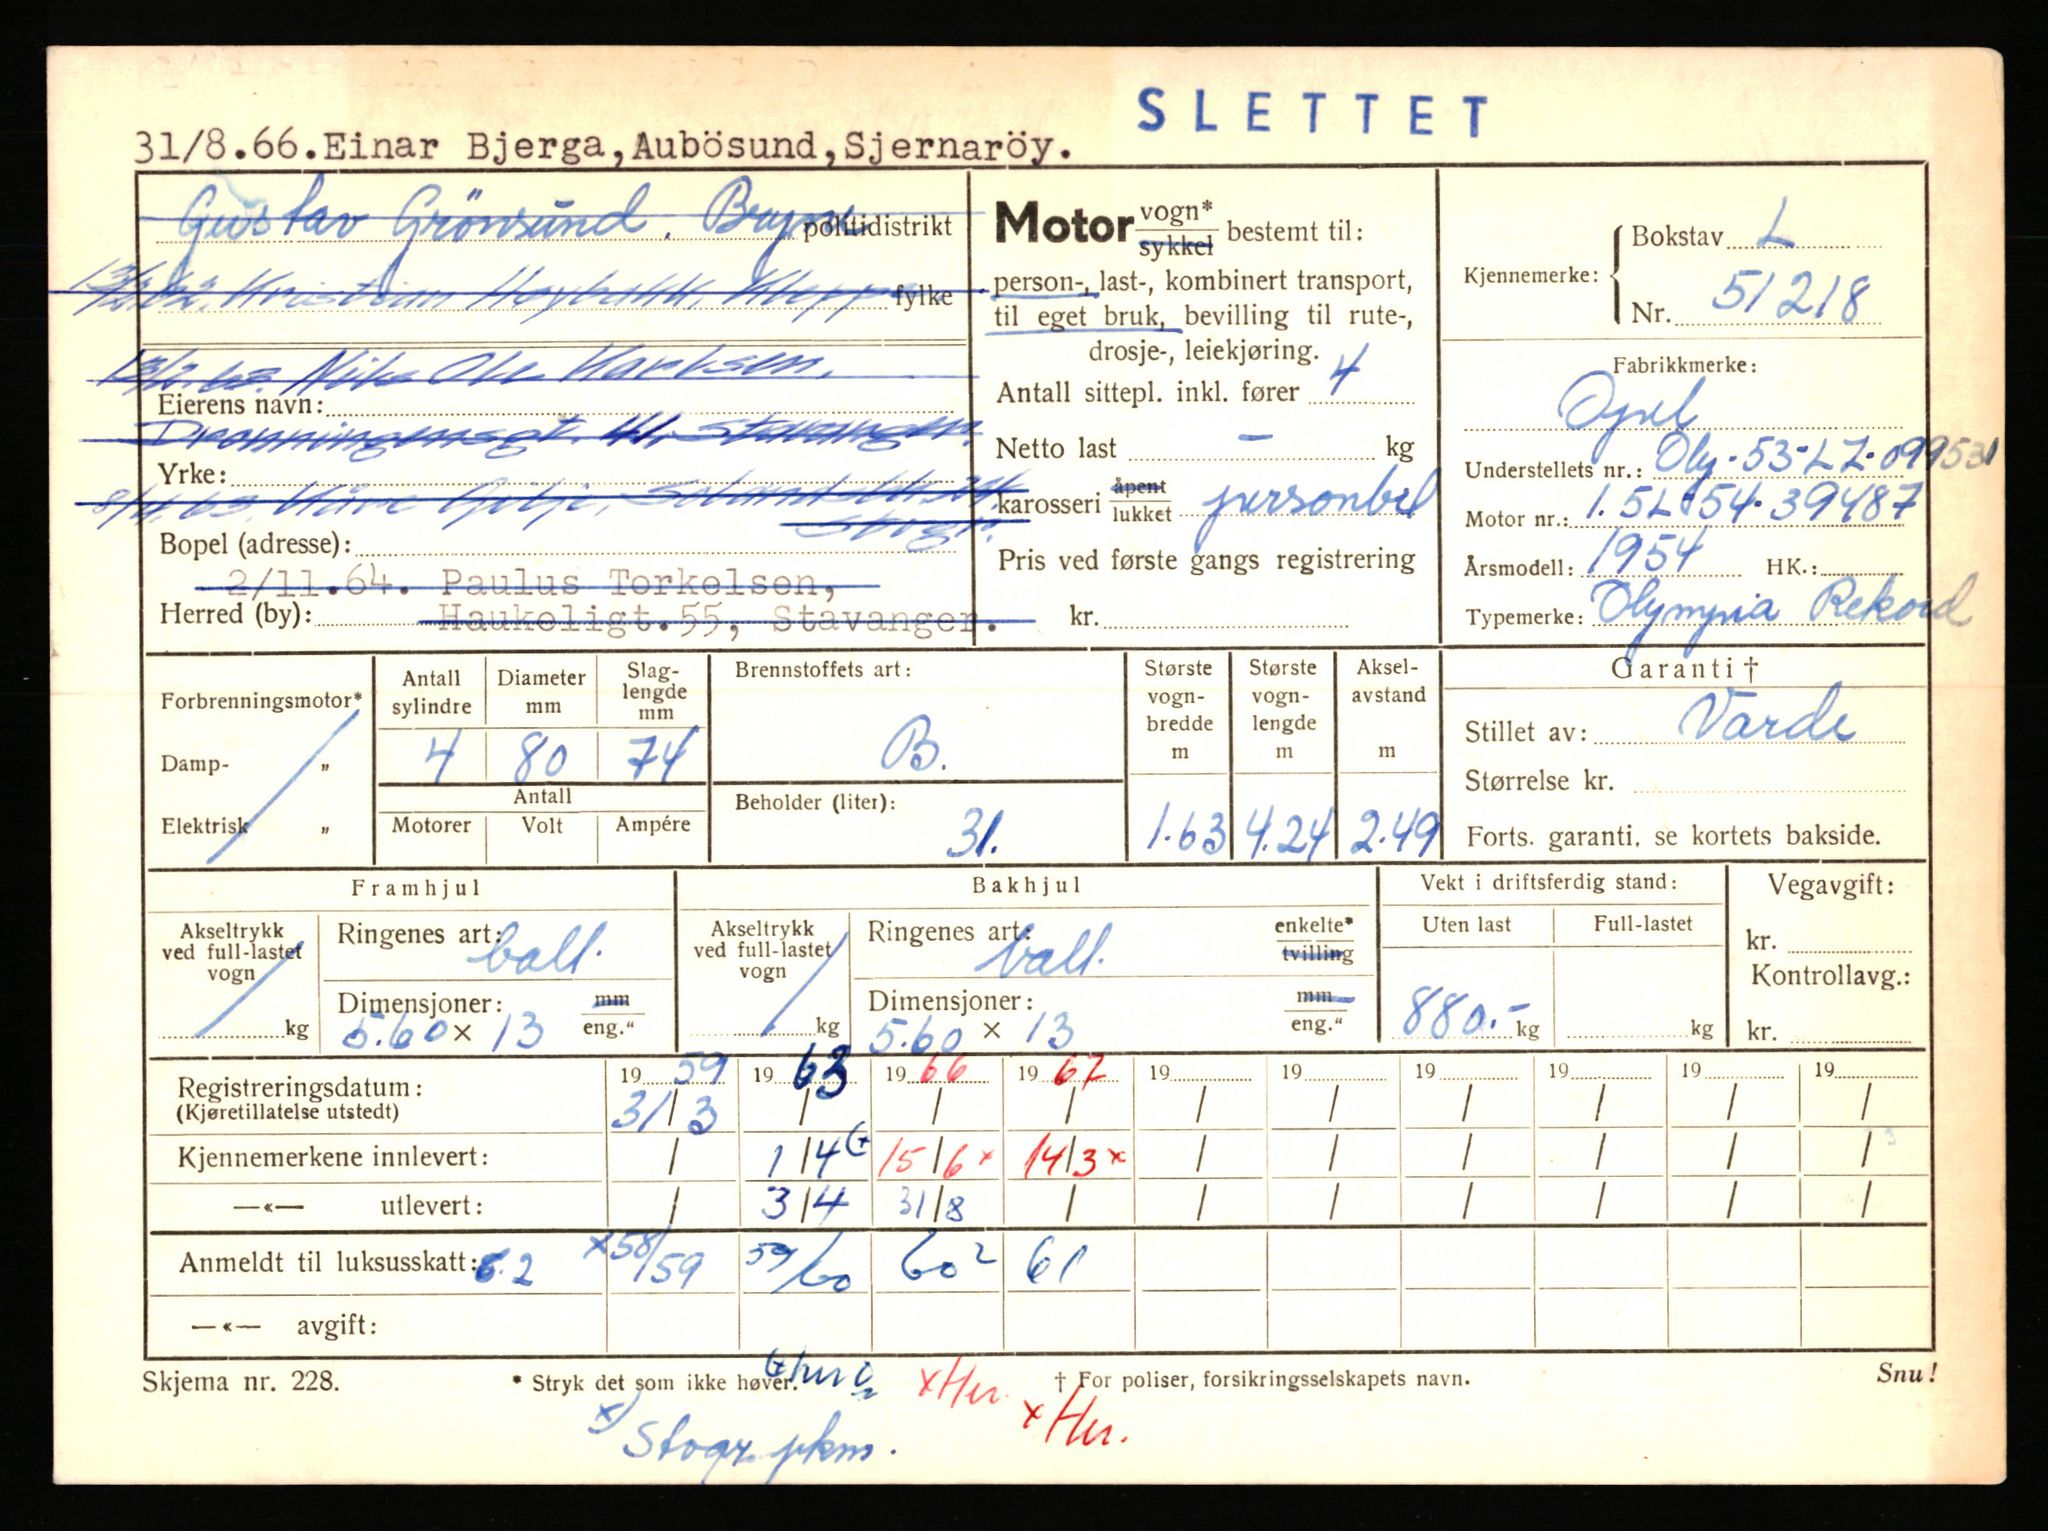 SLETTET
31/8.66.Einar Bjerga,Aubösund,Sjernaröy.
Gustav Grönsund. Bryne politidistrikt
Kristian Høybakk. Klepp fylke
13/2.63. Nils Ole Karlsen.
Eierens navn:
Dronningensgt. 41, Stavanger.
Yrke:
8/11.63. Kåre Gilje,
Stvgr.
Bopel (adresse):
2/11.64. Paulus Torkelsen,
Herred (by): Haukeligt.55, Stavanger.
Motor vogn* sykkel bestemt til:
person-, last-, kombinert transport,
til eget bruk, bevilling til rute-,
drosje-, leiekjøring.
Antall sittepl. inkl. fører 4
Netto last – kg
karosseri åpent lukket personbil
Pris ved første gangs registrering
kr.
Kjennemerke: Bokstav L
Nr. 51218
Fabrikkmerke:
Opel
Understellets nr.: Oly-53-LZ-099531
Motor nr.: 1.5L-54-39487
Årsmodell: 1954 HK.:
Typemerke: Olympia Rekord
Forbrenningsmotor*
Damp- „
Elektrisk „
Antall sylindre Diameter mm Slag-lengde mm
4 80 74
Antall
Motorer Volt Ampére
Brennstoffets art:
B.
Beholder (liter):
31.
Største vogn-bredde m Største vogn-lengde m Aksel-avstand m
1.63 4.24 2.49
Garanti †
Stillet av: Varde
Størrelse kr.
Forts. garanti, se kortets bakside.
Framhjul
Akseltrykk ved full-lastet vogn kg
Ringenes art: ball.
Dimensjoner: mm eng."
5.60 × 13
Bakhjul
Akseltrykk ved full-lastet vogn kg
Ringenes art: ball. enkelte* tvilling
Dimensjoner: mm eng."
5.60 × 13
Vekt i driftsferdig stand:
Uten last Full-lastet
880.- kg kg
Vegavgift:
kr.
Kontrollavg.:
kr.
Registreringsdatum: 19 59 19 63 19 66 19 67 19 19 19 19 19 19
(Kjøretillatelse utstedt) 31/3 / / / / / / / / /
Kjennemerkene innlevert: / 1/4 15/6 x 14/3 x / / / / / /
—«— utlevert: / 3/4 31/8 / / / / / / /
Anmeldt til luksusskatt: 6.2 x58/59 59/60 60² 61
—«— avgift:
Skjema nr. 228. * Stryk det som ikke høver. † For poliser, forsikringsselskapets navn. Snu!
x Her. x Her.
x) Stvgr. pkm.